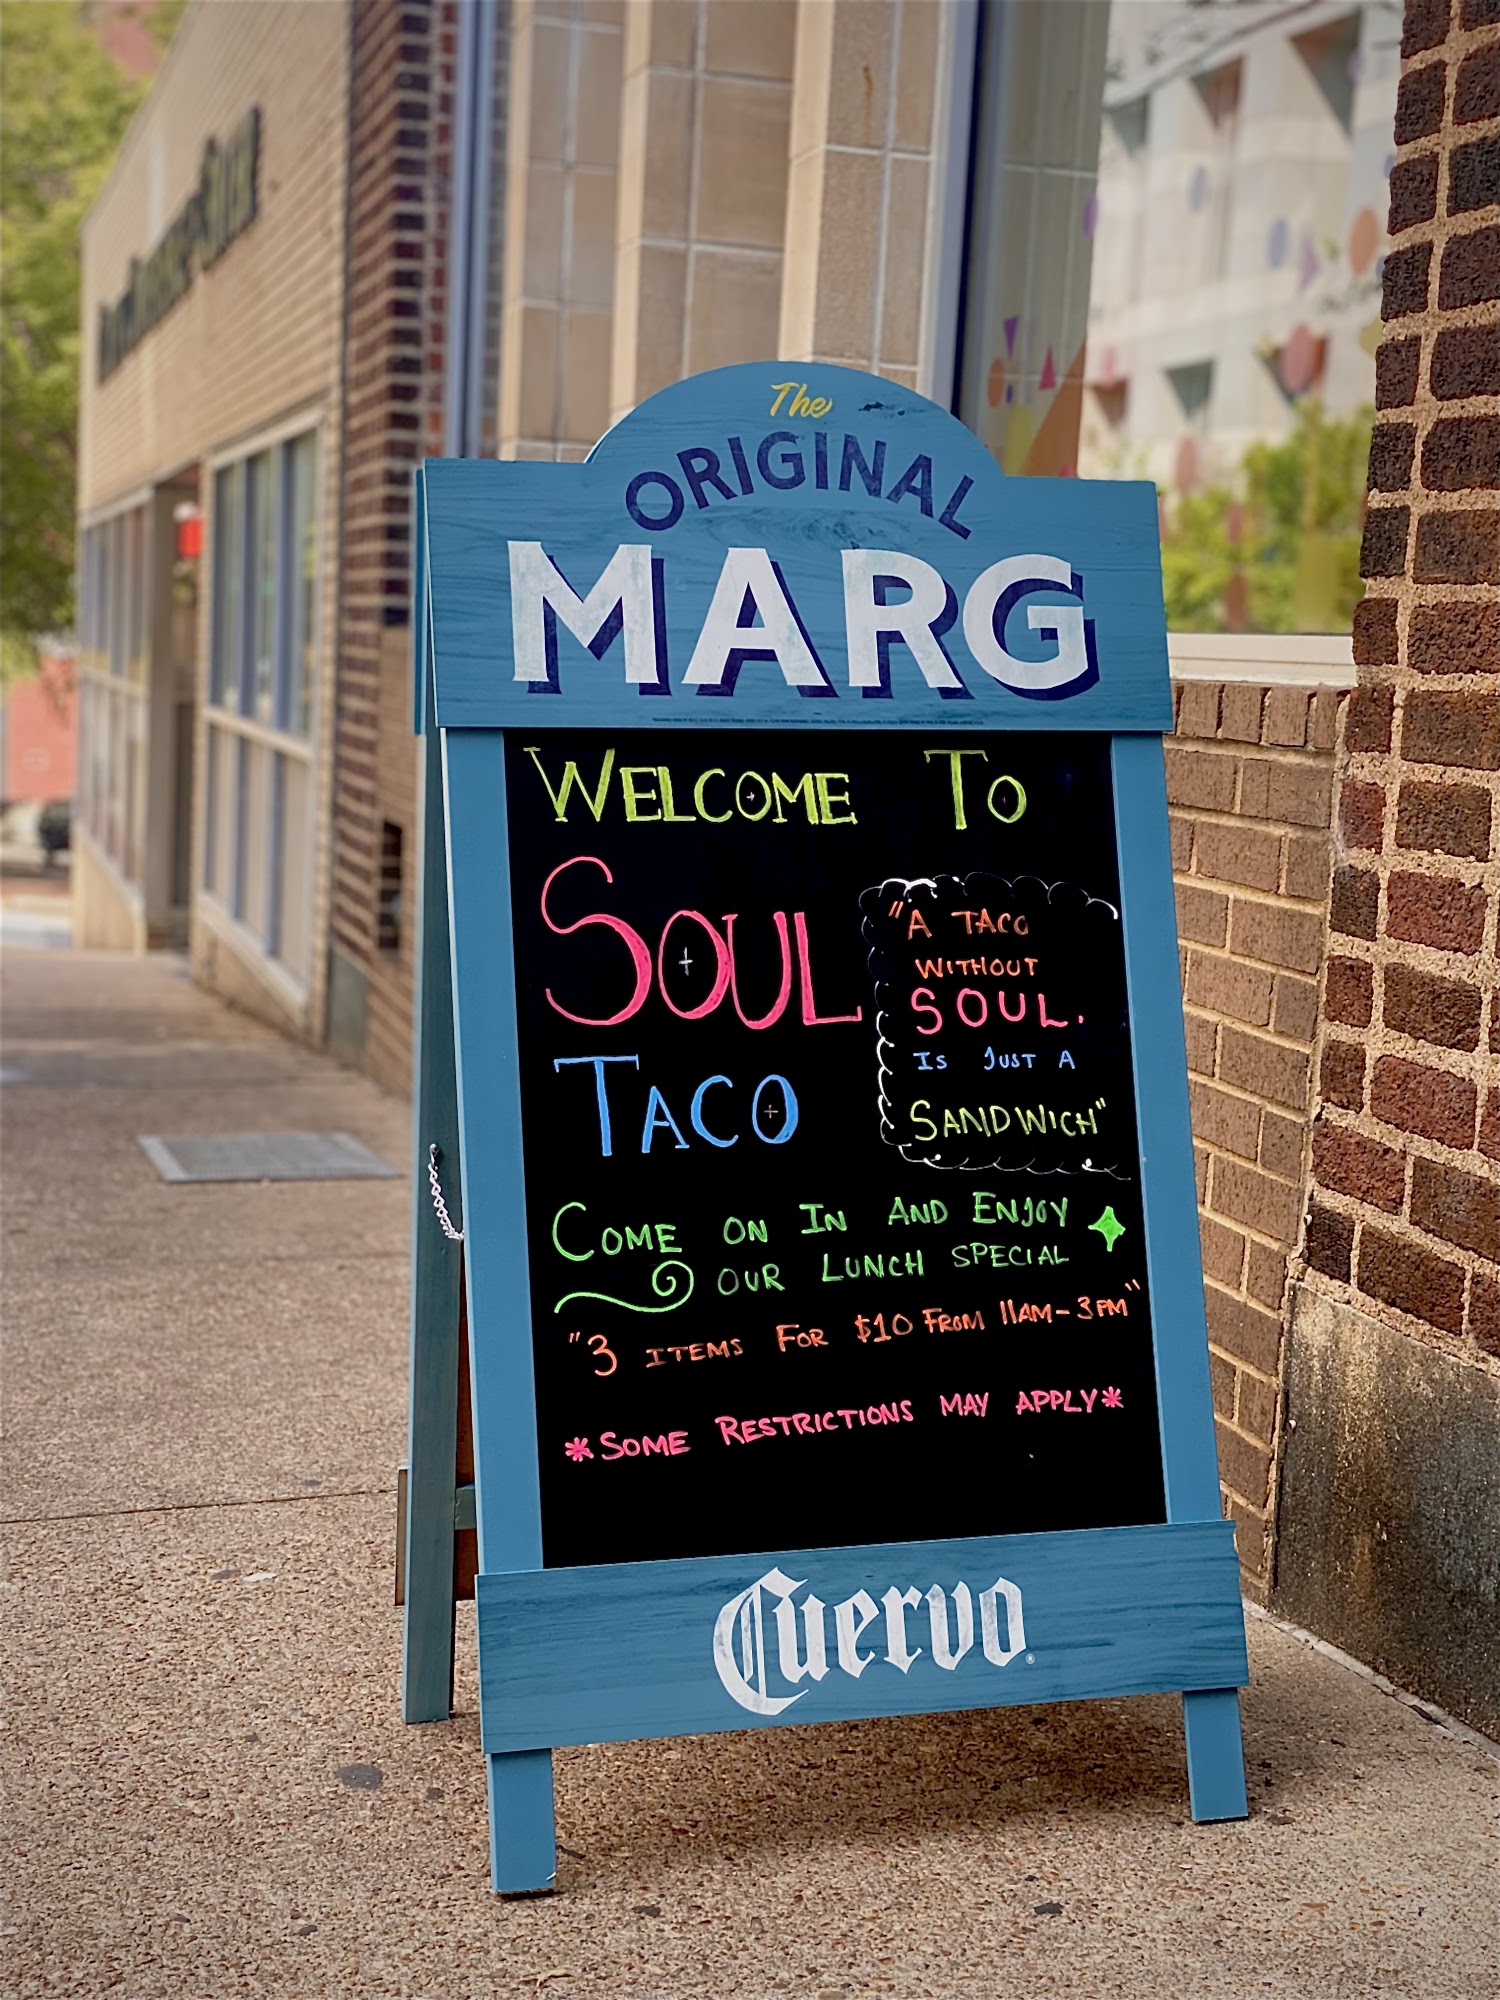 The
ORIGINAL
MARG
WELCOME TO
SOUL
TACO
"A TACO
WITHOUT
SOUL.
IS JUST A
SANDWICH"
COME ON IN AND ENJOY
OUR LUNCH SPECIAL
"3 ITEMS FOR $10 FROM 11AM-3PM"
*SOME RESTRICTIONS MAY APPLY*
Cuervo®